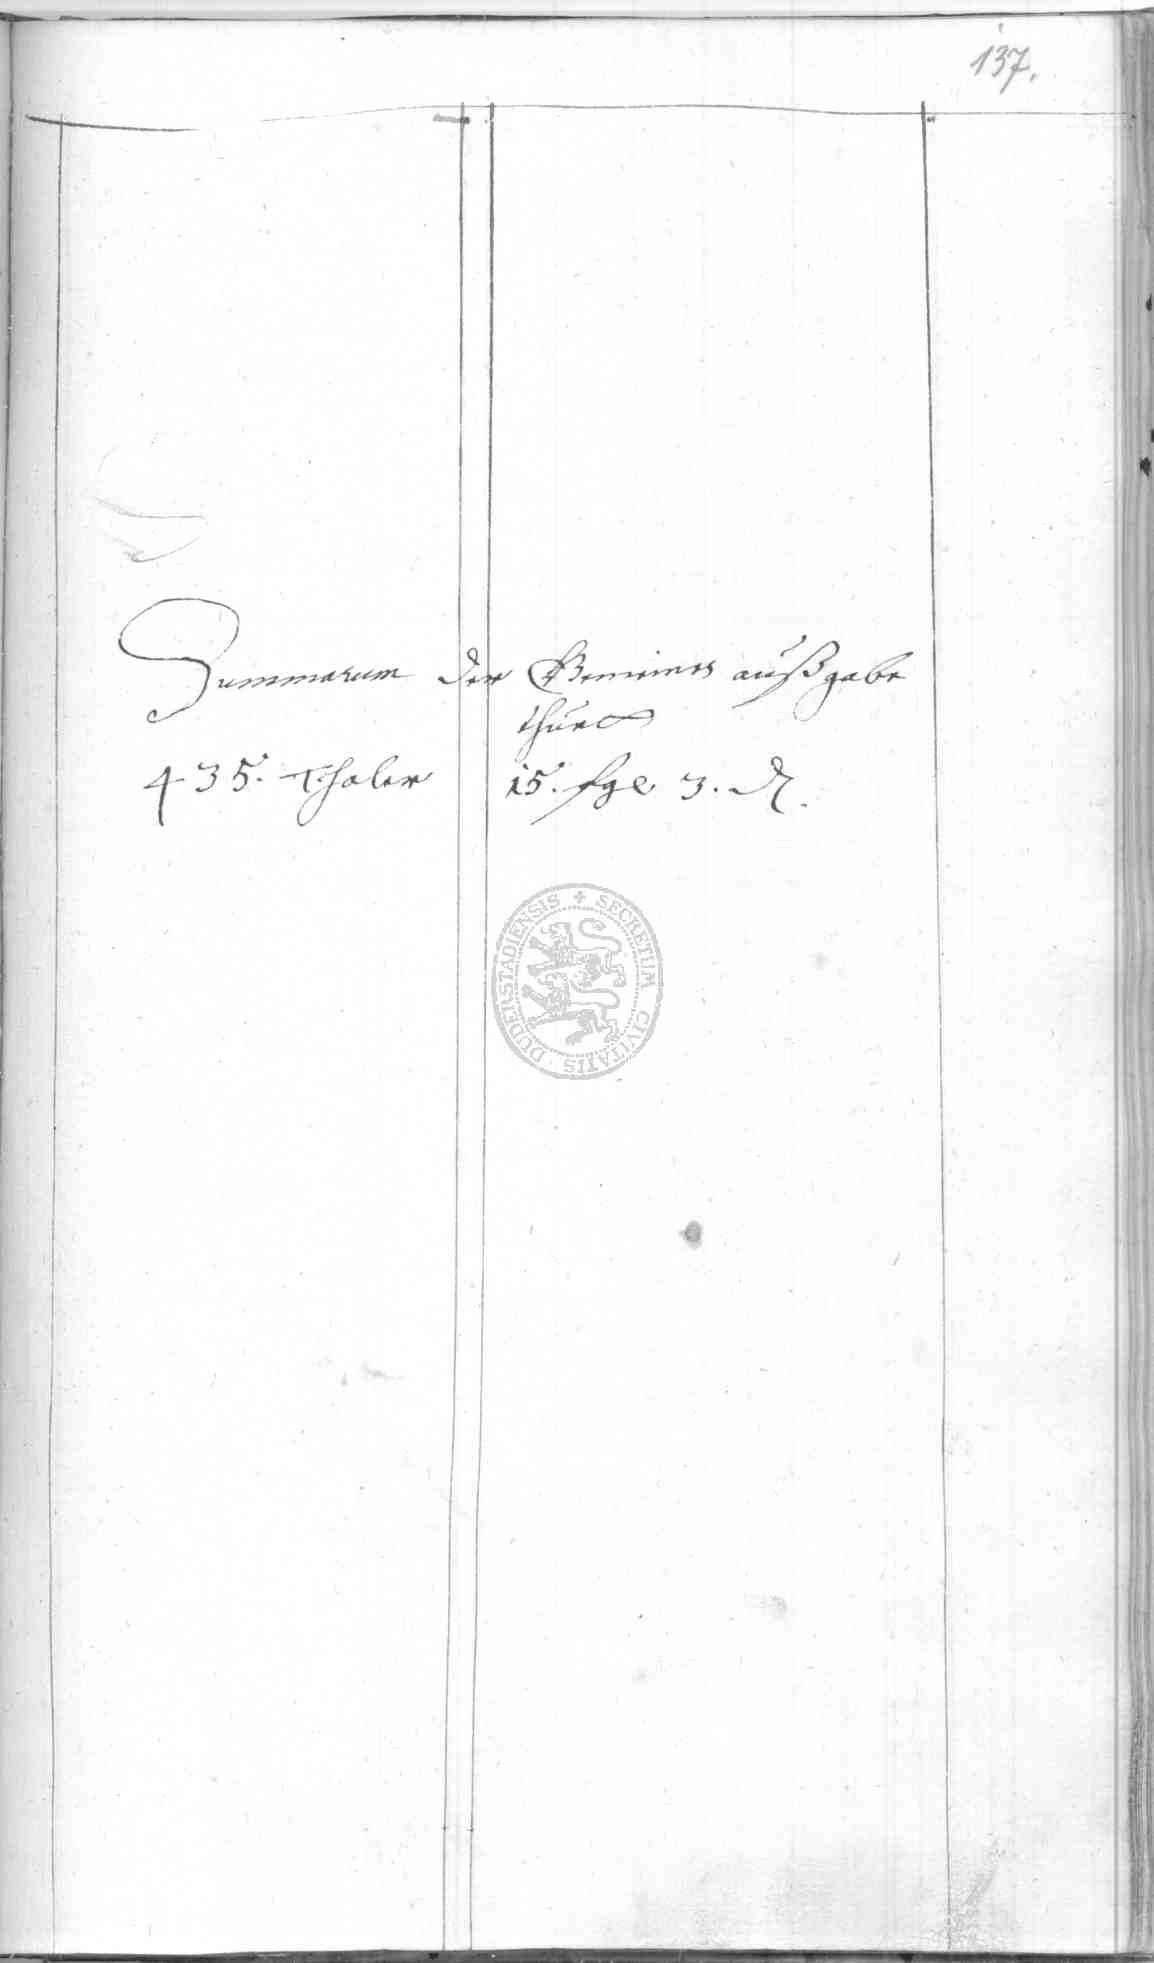 137.
Summarum der Gemeinen außgabe
thuet
435. Thaler 15. sgl 3. ₰.
SECRETUM CIVITATIS DUDERSTADIENSIS